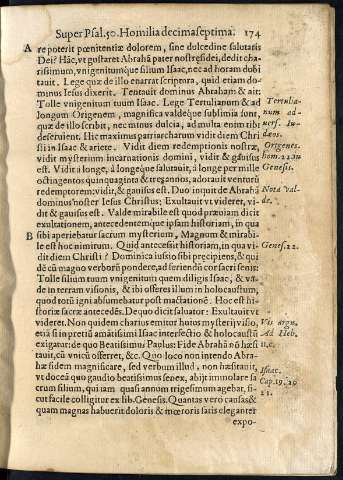 Super Psal. 50. Homilia decimaseptima. 174
A re poterit pœnitentiæ dolorem, sine dulcedine salutatis
Dei? Hãc, vt gustaret Abrahã pater nostresidei, dedit cha-
rissimum, vnigenitumque silium Isaac, nec ad horam dobi
tauit. Lege quæ de illo enarrat scriptura, quid etiam do-
minus Iesus dixerit. Tentauit dominus Abraham & ait:
Tolle vnigenitum tuum Isaac. Lege Tertulianum & ad
longum Origenem, magnifica valdeque sublimia sunt,
quæ de illo scribit, nec minus dulcia, ad multa enim tibi
deseruient. Hic maximus patriarcharum vidit diem Chri
sti in Isaac & ariete. Vidit diem redemptionis nostræ,
vidit mysterium incarnationis domini, vidit & gauisus
est. Vidit à longe, à longeque salutauit, à longe per mille
octingentos quinquaginta & tres annos, adorauit venturũ
redemptorem: vidit, & gauisus est. Duo inquit de Abrahã
dominus noster Iesus Christus; Exultauit vt videret, vi-
dit & gauisus est. Valde mirabile est quod præuiam dicit
exultationem, antecedentemque ipsam historiam, in qua
B sibi aperiebatur sacrum mysterium, Magnum & mirabi-
le est hoc nimirum. Quid antecessit historiam, in qua vi-
dit diem Christi? Dominica iussio sibi precipiens, & qui
dẽ cũ magno verborũ pondere, ad feriendũ cor sacri senis:
Tolle filium tuum vnigenitum quem diligis Isaac, & va-
de in terram visionis, & ibi offeres illum in holocaustum,
quod totũ igni absumebatur post mactationẽ. Hoc est hi-
storiæ sacræ antecedẽs. De quo dicit saluator: Exultauit vt
videret. Non quidem charius emitur huius mysterij visio,
etiã si in pretiũ amãtissimi Isaac intersectio & holocaustũ
exigatur: de quo Beatissimus Paulus: Fide Abrahã nõ hæsi
tauit, cũ vnicũ offerret, &c. Quo loco non intendo Abra-
hæ fidem magnificare, sed verbum illud, non hæsitauit,
vt docea quo gaudio beatissimus senex, abijt immolare sa
crum silium, qui iam quasi annum trigesimum agebat, si-
cut facile colligitur ex lib. Genesis. Quantas vero causas &
quam magnas habuerit doloris & mœroris satis eleganter
expo-
Tertulia-
num ad-
uers. Iu-
dæos.
Origenes.
Genesis.
Nota val-
de.
Genes. 22.
Vis argu.
Ad Heb.
11. c.
Isaac.